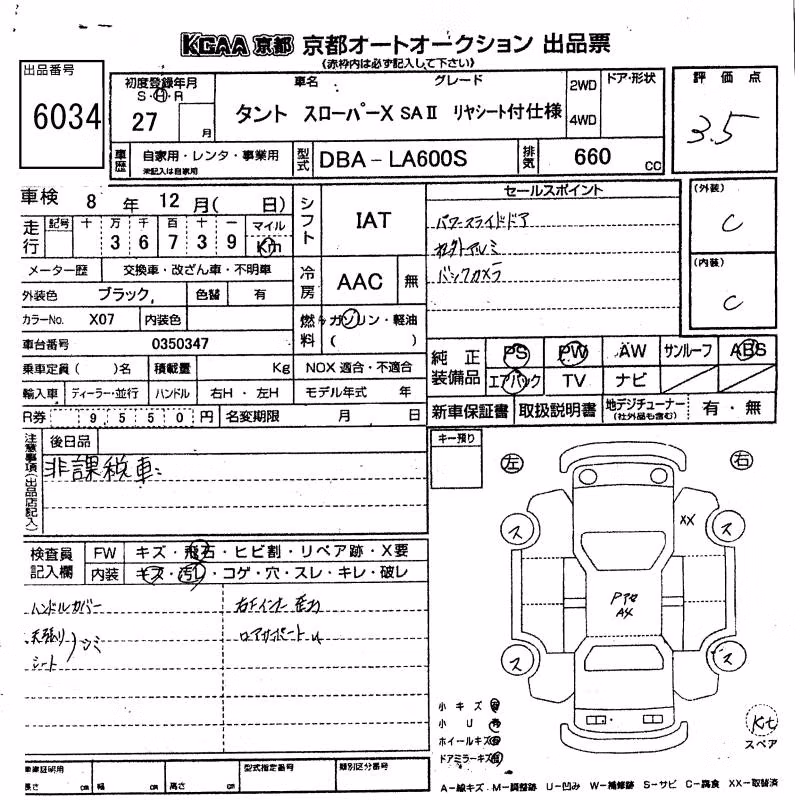 KCAA 京都 京都オートオークション 出品票
(赤枠内は必ず記入して下さい)
出品番号
6034
初度登録年月
S・H・R
27 月
車名 グレード
タント スローパーX SAⅡ リヤシート付仕様
2WD
4WD
ドア・形状
評価点
3.5
車歴
自家用・レンタ・事業用
未記入は自家用
型式
DBA-LA600S
排気
660 cc
車検 8 年 12 月( 日)
走行
記号 十 万 千 百 十 一
3 6 7 3 9
マイル
Km
シフト
IAT
セールスポイント
パワースライドドア
社外アルミ
バックカメラ
(外装)
C
(内装)
C
メーター歴 交換車・改ざん車・不明車
冷房
AAC 無
外装色 ブラック 色替 有
カラーNo. X07 内装色
燃料
ガソリン・軽油
( )
車台番号 0350347
純正装備品
PS PW AW サンルーフ ABS
エアバック TV ナビ
乗車定員( )名 積載量 Kg NOX 適合・不適合
輸入車 ディーラー・並行 ハンドル 右H・左H モデル年式 年
新車保証書 取扱説明書 地デジチューナー(社外品も含む) 有・無
R券 9550円 名変期限 月 日
注意事項(出品店記入)
後日品
非課税車
キー預り
左 右
ス ス
XX
Pアセ
A4
ス ス
検査員記入欄
FW キズ・飛石・ヒビ割・リペア跡・X要
内装 キズ・汚れ・コゲ・穴・スレ・キレ・破レ
ハンドルカバー
天張り
シート
シミ
ロアサポートU
小キズ 有
小U 有
ホイールキズ 有
ドアミラーキズ 有
Kit
スペア
車庫証明用
長さ cm 幅 cm 高さ cm
型式指定番号
類別区分番号
A-線キズ M-調整跡 U-凹み W-補修跡 S-サビ C-腐食 XX-取替済